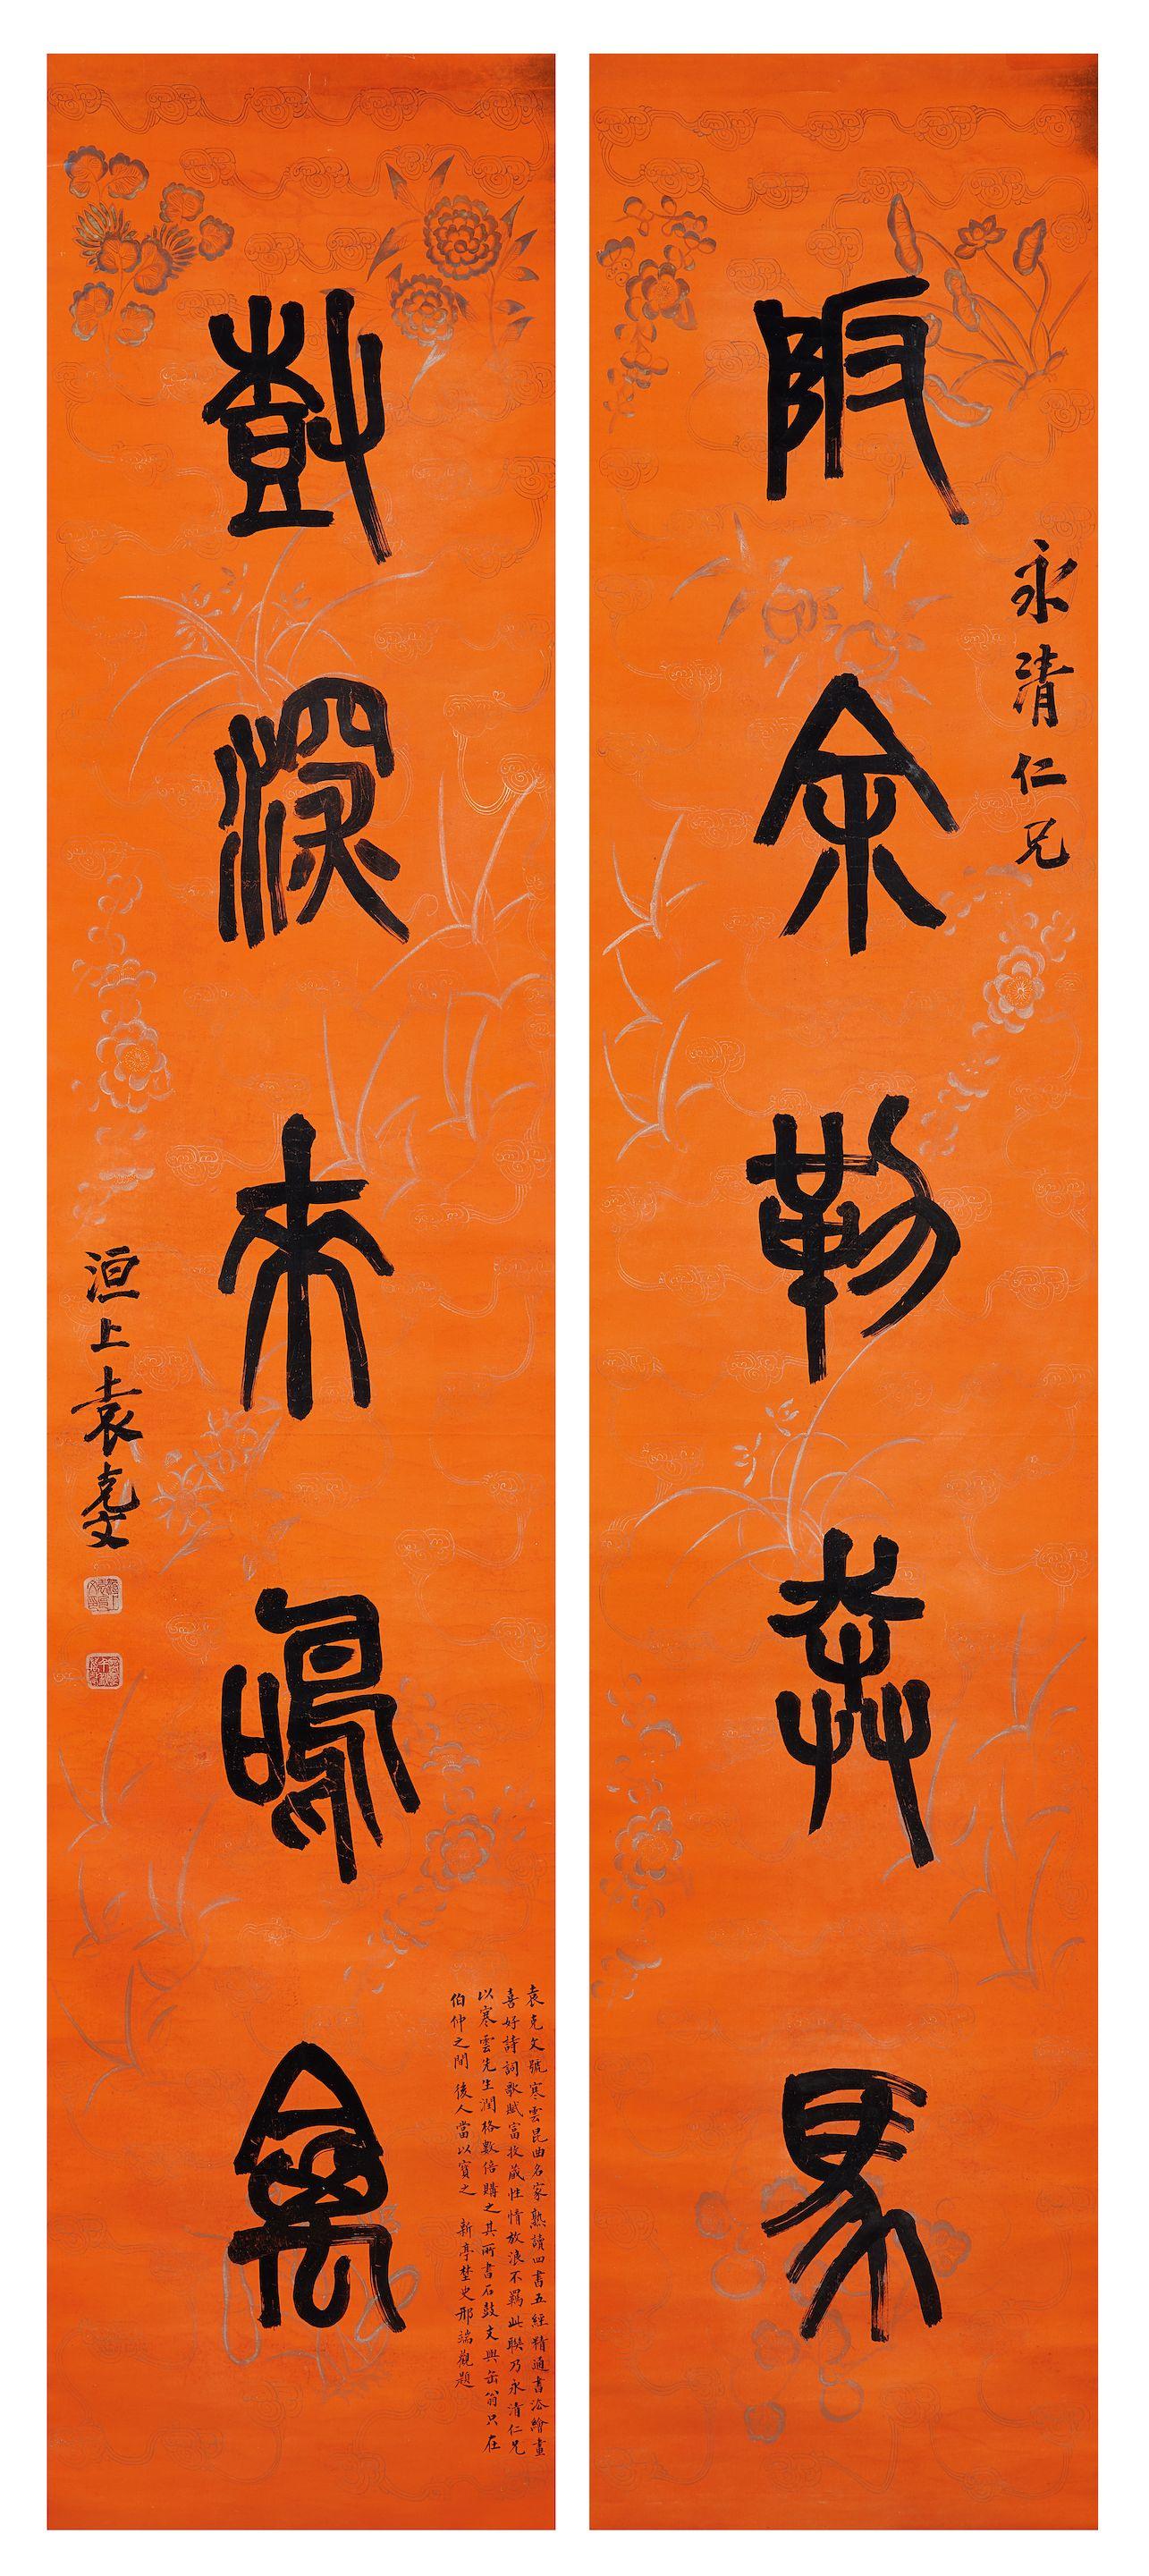 永清仁兄
阪余勒奔馬
尌深來鳴禽
洹上袁克文
袁克文號寒雲昆曲名家熟讀四書五經精通書法繪畫
喜好詩詞歌賦富收藏性情放浪不羈此聯乃永清仁兄
以寒雲先生潤格數倍購之其所書石鼓文與缶翁只在
伯仲之間後人當以寶之 新亭埜史邢端觀題